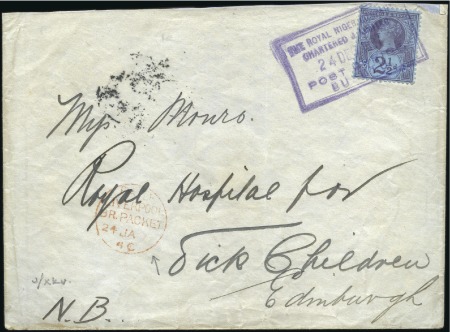 THE ROYAL NIGER
CHARTERED &
24 DE
POST
BU
2½
Miss Monro.
Royal Hospital for
Sick Children
Edinburgh
LIVERPOOL
BR. PACKET
24 JA
N.B.